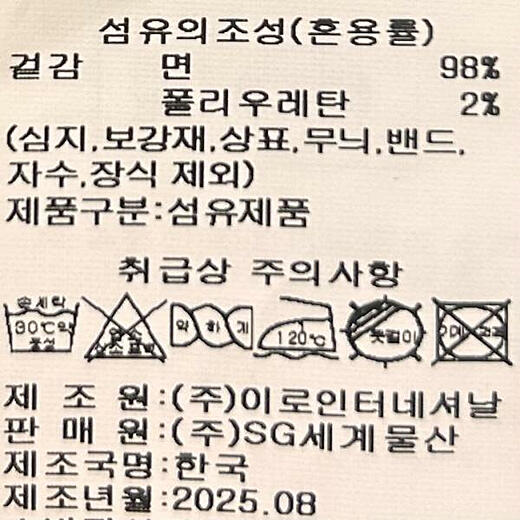 섬유의조성(혼용률)
겉감 면 98%
폴리우레탄 2%
(심지,보강재,상표,무늬,밴드,
자수,장식 제외)
제품구분:섬유제품
취급상 주의사항
손세탁
30℃약
중성
약하게
120℃
옷걸이
제 조 원:(주)이로인터네셔날
판 매 원:(주)SG세계물산
제조국명:한국
제조년월:2025.08